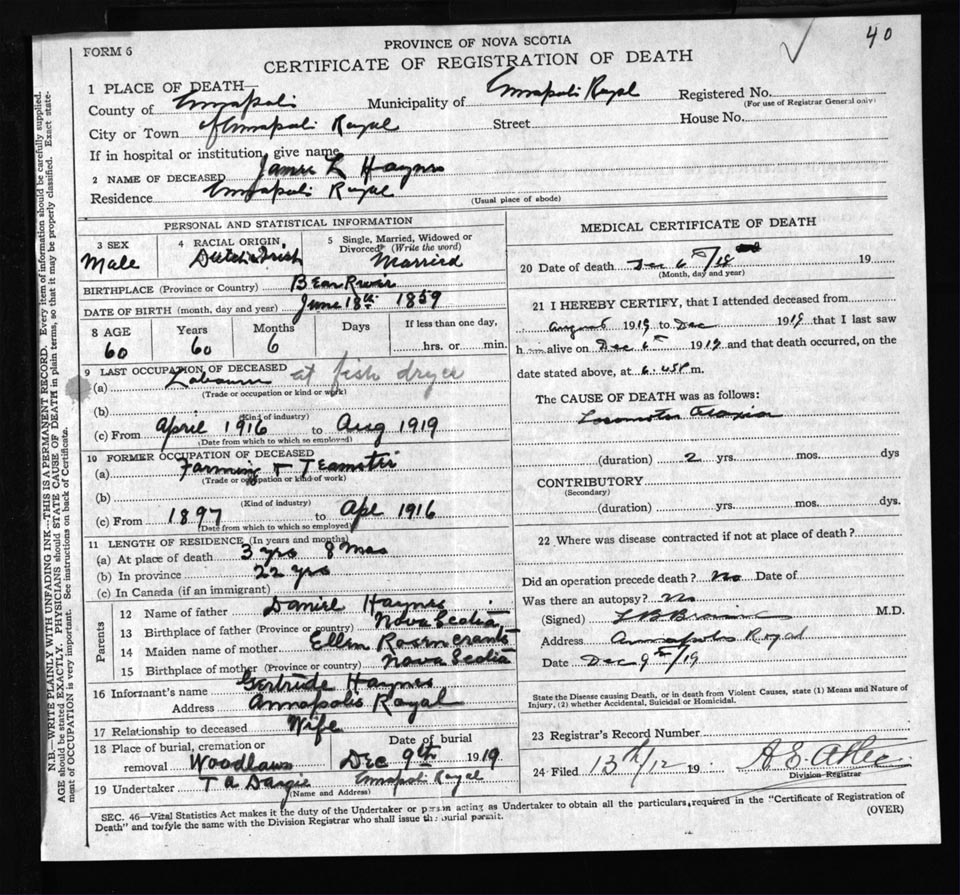 40
FORM 6
PROVINCE OF NOVA SCOTIA
CERTIFICATE OF REGISTRATION OF DEATH
N.B.—WRITE PLAINLY WITH UNFADING INK—THIS IS A PERMANENT RECORD. Every item of information should be carefully supplied.
AGE should be stated EXACTLY. PHYSICIANS should STATE CAUSE OF DEATH in plain terms, so that it may be properly classified. Exact state-
ment of OCCUPATION is very important. See instructions on back of Certificate.
1 PLACE OF DEATH—
County of Annapolis Municipality of Annapolis Royal Registered No.
(For use of Registrar General only)
City or Town Annapolis Royal Street House No.
If in hospital or institution, give name
2 NAME OF DECEASED James L Haynes
Residence Annapolis Royal
(Usual place of abode)
PERSONAL AND STATISTICAL INFORMATION
3 SEX Male
4 RACIAL ORIGIN Dutch Irish
5 Single, Married, Widowed or Divorced? (Write the word) Married
BIRTHPLACE (Province or Country) Bear River
DATE OF BIRTH (month, day and year) June 18th 1859
8 AGE Years Months Days If less than one day,
60 60 6 hrs. or min.
9 LAST OCCUPATION OF DECEASED
(a) Labourer at fish dryer
(Trade or occupation or kind of work)
(b)
(Kind of industry)
(c) From April 1916 to Aug 1919
(Date from which to which so employed)
10 FORMER OCCUPATION OF DECEASED
(a) Farming & Teamster
(Trade or occupation or kind of work)
(b)
(Kind of industry)
(c) From 1897 to Apl 1916
(Date from which to which so employed)
11 LENGTH OF RESIDENCE (In years and months)
(a) At place of death 3 yrs 8 Mos
(b) In province 22 yrs
(c) In Canada (if an immigrant)
Parents
12 Name of father Daniel Haynes
13 Birthplace of father (Province or country) Nova Scotia
14 Maiden name of mother Ellen Rosencrants
15 Birthplace of mother (Province or country) Nova Scotia
16 Informant's name Gertrude Haynes
Address Annapolis Royal
17 Relationship to deceased Wife
18 Place of burial, cremation or removal Woodlawn
Date of burial Dec 9th 1919
19 Undertaker T A Dargie Annapolis Royal
(Name and Address)
MEDICAL CERTIFICATE OF DEATH
20 Date of death Dec 6th/18 19
(Month, day and year)
21 I HEREBY CERTIFY, that I attended deceased from
August 1919 to Dec 1919 that I last saw
h im alive on Dec 6th 1919 and that death occurred, on the
date stated above, at 6.45 P m.
The CAUSE OF DEATH was as follows:
Locomotor Ataxia
(duration) 2 yrs. mos. dys
CONTRIBUTORY
(Secondary)
(duration) yrs. mos. dys.
22 Where was disease contracted if not at place of death?
Did an operation precede death? No Date of
Was there an autopsy? No
(Signed) M.D.
Address Annapolis Royal
Date Dec 9th/19
State the Disease causing Death, or in death from Violent Causes, state (1) Means and Nature of
Injury, (2) whether Accidental, Suicidal or Homicidal.
23 Registrar's Record Number
24 Filed 13th/12 19
Division Registrar
SEC. 46—Vital Statistics Act makes it the duty of the Undertaker or person acting as Undertaker to obtain all the particulars required in the "Certificate of Registration of
Death" and to fyle the same with the Division Registrar who shall issue the burial permit.
(OVER)